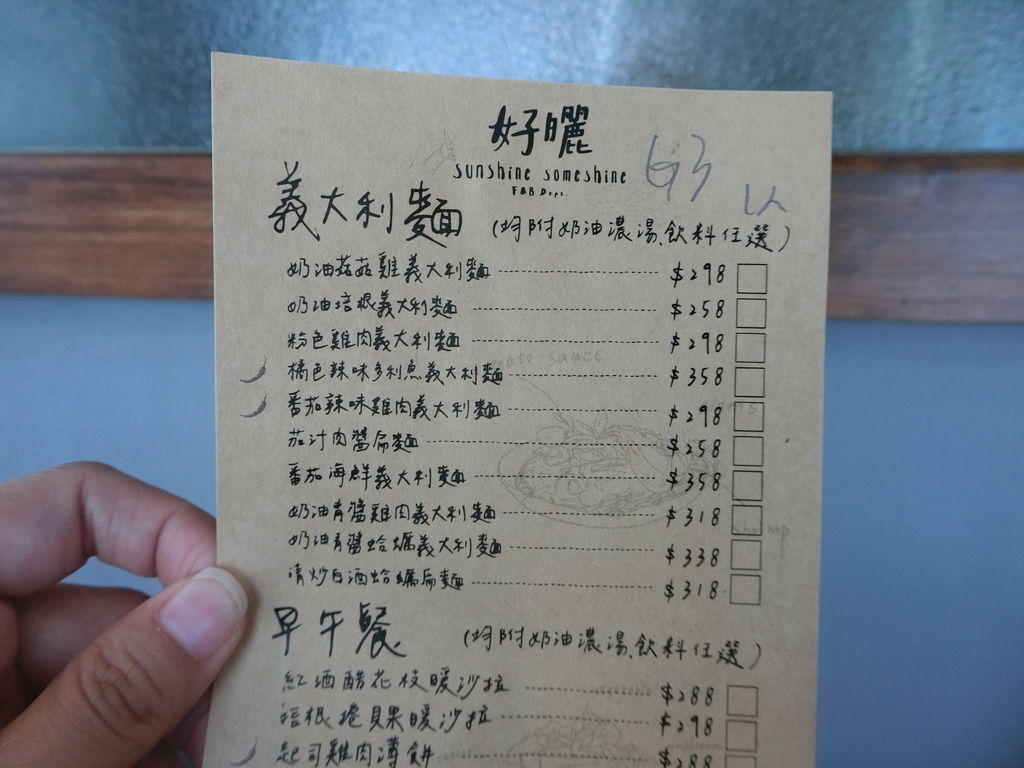 好曬
sunshine someshine
F&B Dept.
義大利麵 (均附奶油濃湯、飲料任選)
奶油菇菇雞義大利麵 $298
奶油培根義大利麵 $258
粉色雞肉義大利麵 $298
橘色辣味多利魚義大利麵 $358
番茄辣味雞肉義大利麵 $298
茄汁肉醬扁麵 $258
番茄海鮮義大利麵 $358
奶油青醬雞肉義大利麵 $318
奶油青醬蛤蠣義大利麵 $338
清炒白酒蛤蠣扁麵 $318
早午餐 (均附奶油濃湯、飲料任選)
紅酒醋花枝暖沙拉 $288
培根捲貝果暖沙拉 $298
起司雞肉薄餅 $288